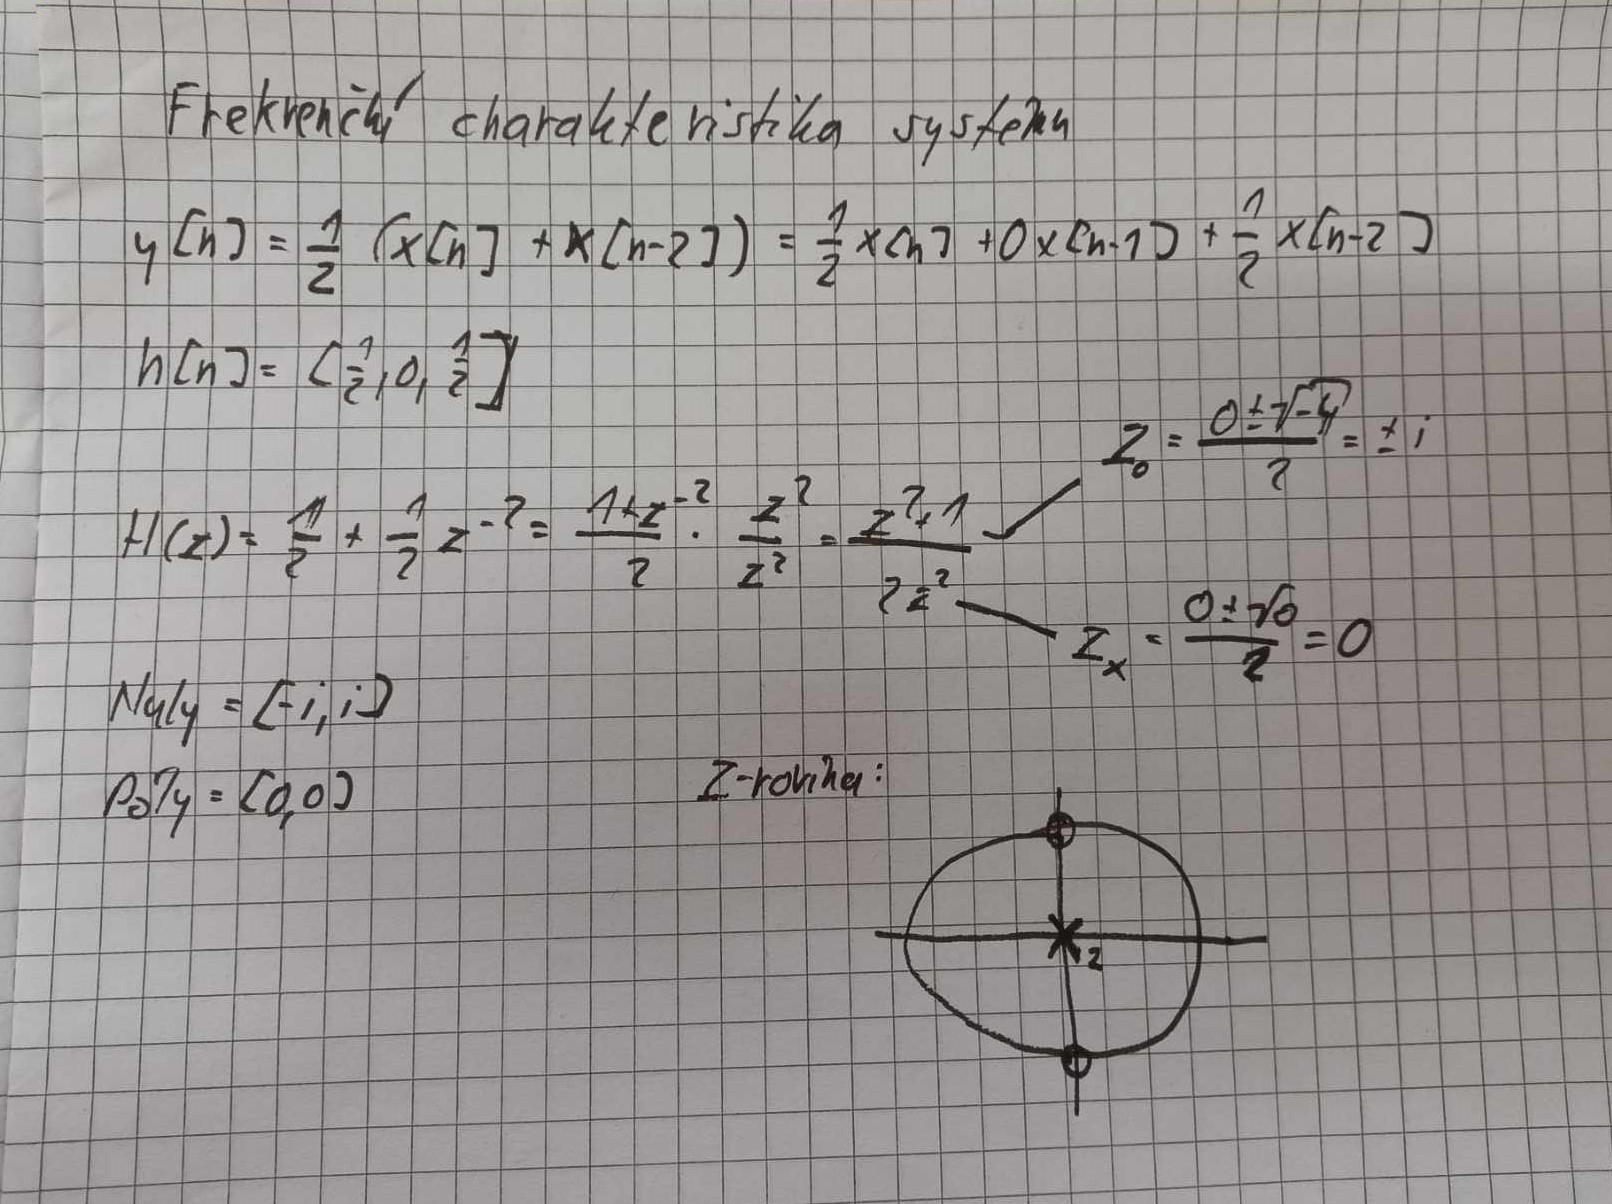 Frekvenční charakteristika systému
y[n] = 1/2 (x[n] + x[n-2]) = 1/2 x[n] + 0x[n-1] + 1/2 x[n-2]
h[n] = [1/2, 0, 1/2]
Z₀ = (0 ± √-4)/2 = ± i
H(z) = 1/2 + 1/2 z⁻² = (1+z⁻²)/2 · z²/z² = (z²+1)/(2z²)
Zₓ = (0 ± √0)/2 = 0
Nuly = [-i, i]
Póly = [0,0]
Z-rovina:
2